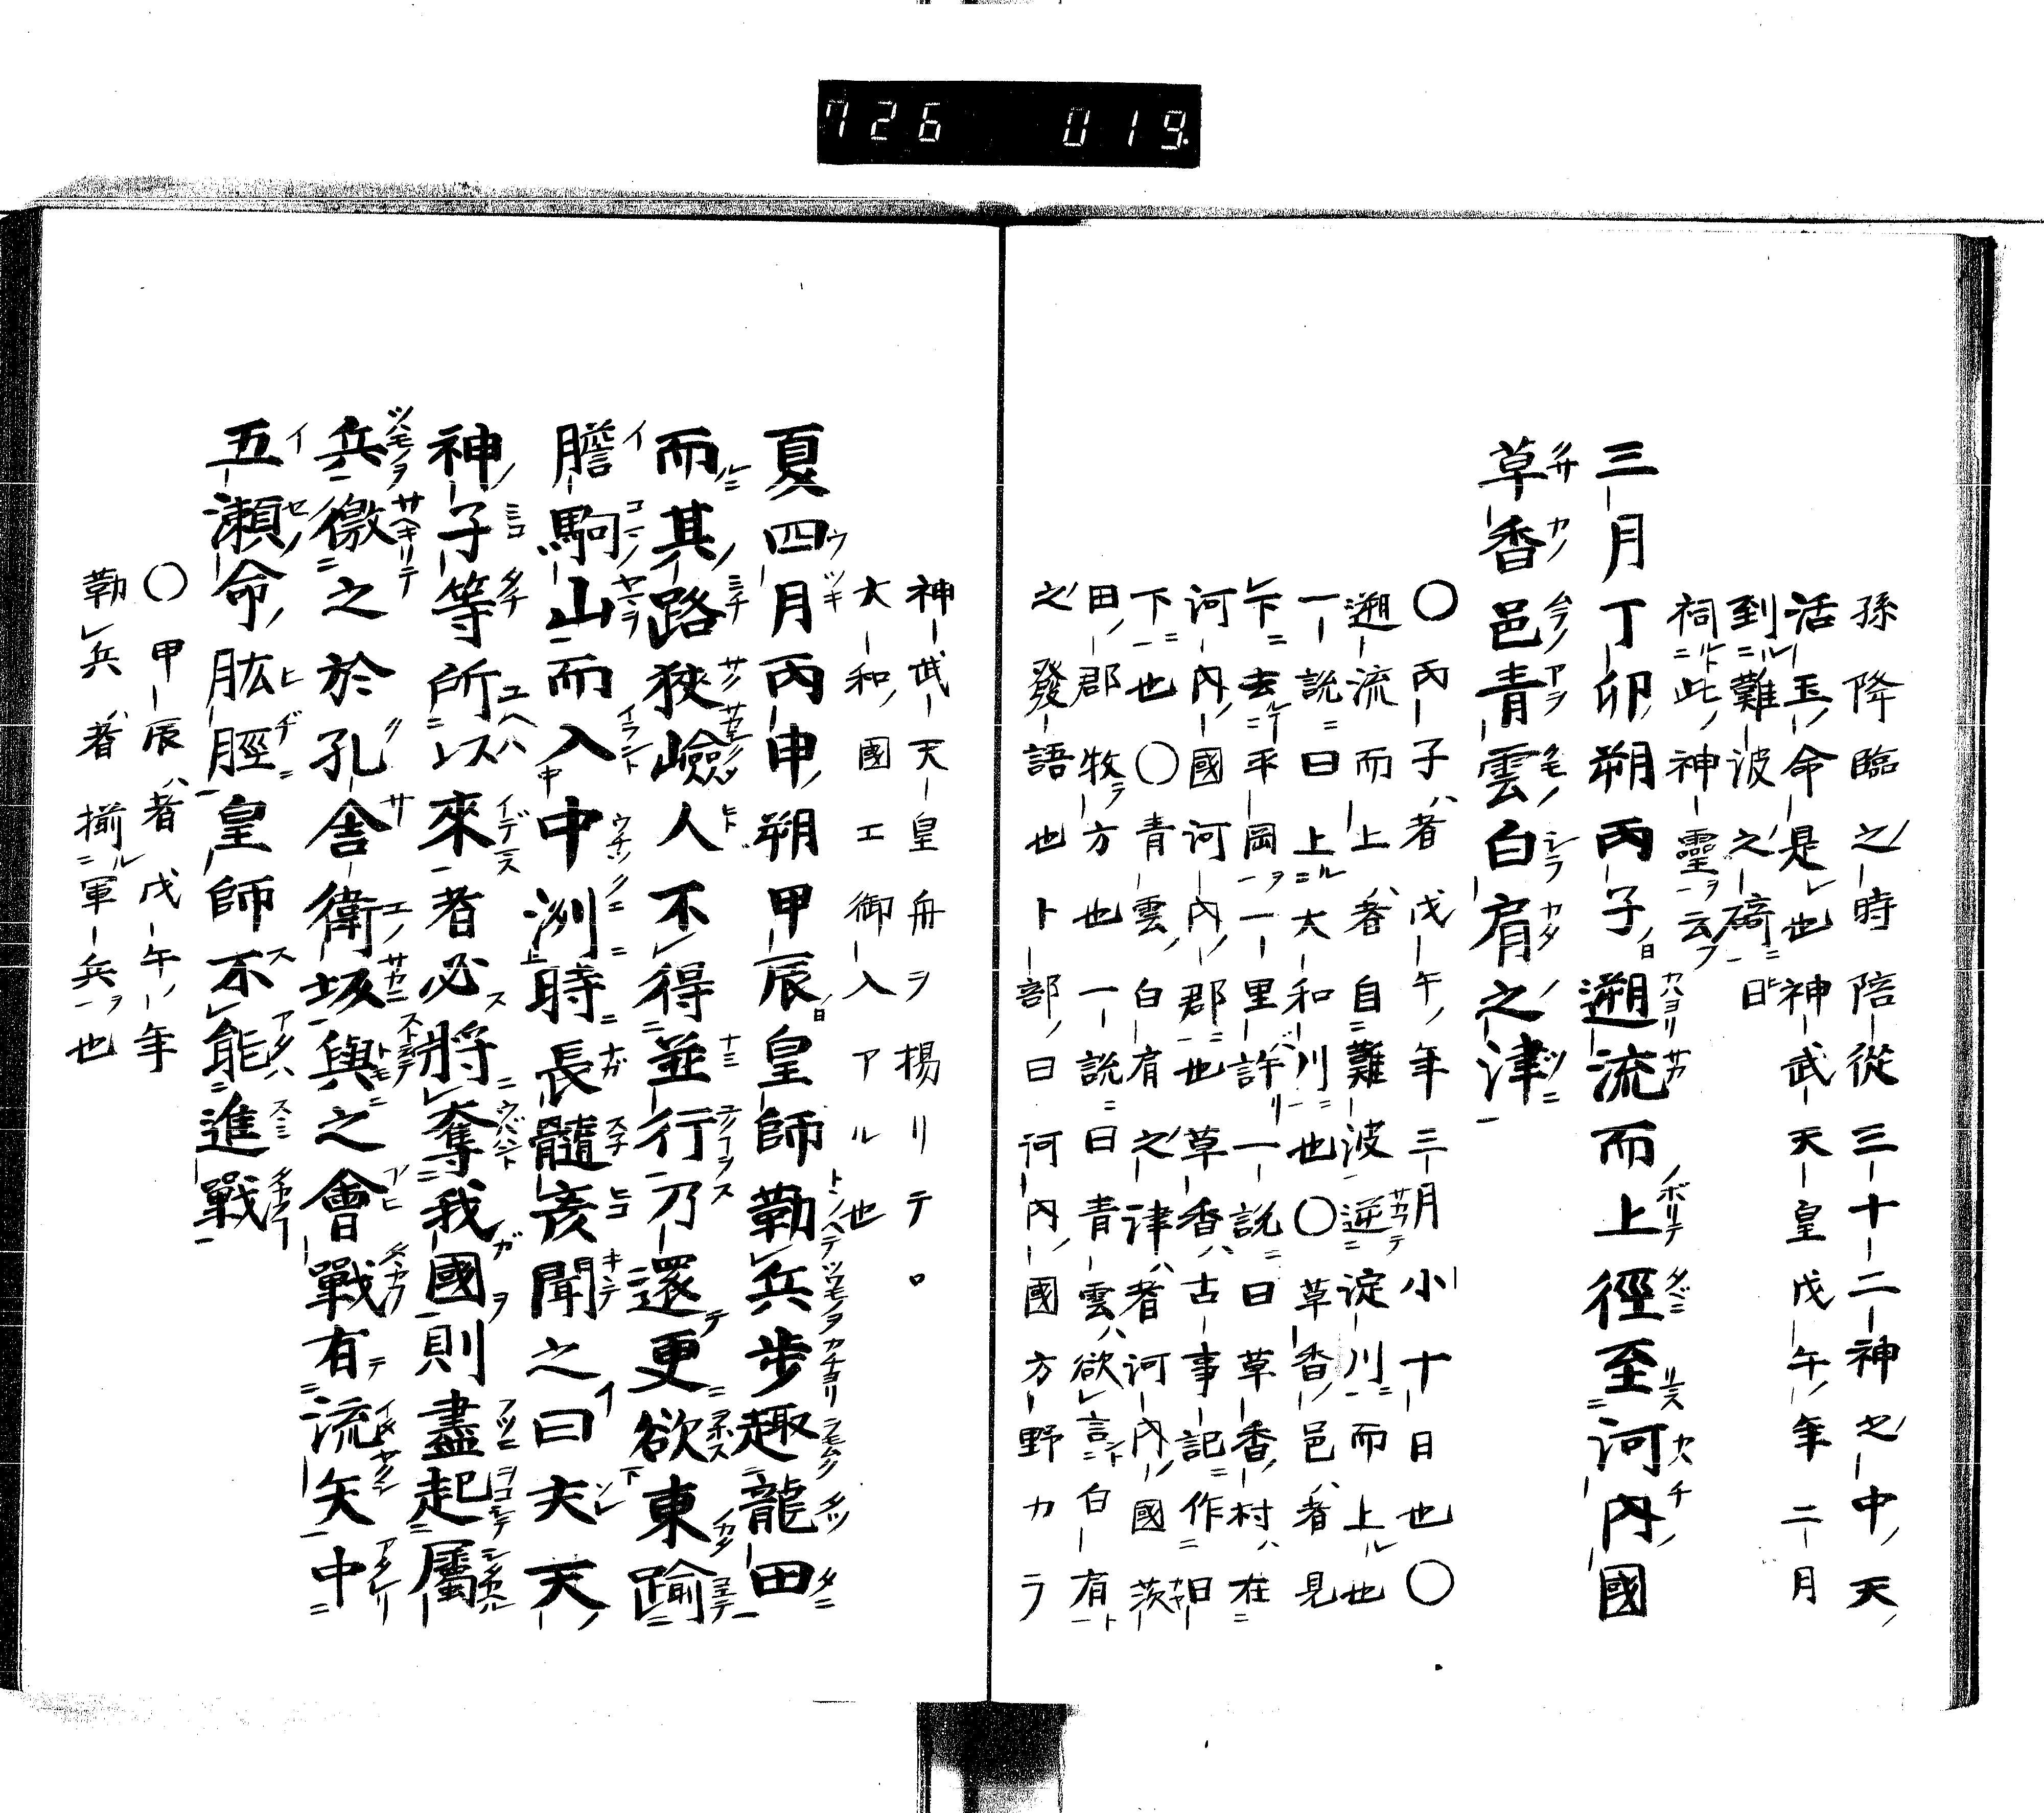 726 019
孫降臨之時陪從三十二神之中天
活玉命是也神武天皇戊午年二月
到難波之碕日
祠此神靈云
三月丁卯朔丙子遡流而上徑至河內國
草香邑青雲白肩之津
〇丙子者戊午年三月小十日也〇
遡流而上者自難波逆淀川而上也
一說曰上大和川也〇草香邑者見
下去平岡一里許一說曰草香村在
河內國河內郡也草香古事記作日
下也〇青雲白肩之津者河內國茨
田郡牧方也一說曰青雲欲言白有
之發語也卜部曰河內國方野カラ
神武天皇舟ヲ揚リテ。
大和國エ御入アル也
夏四月丙申朔甲辰皇師勒兵步趣龍田
而其路狹嶮人不得並行乃還更欲東踰
膽駒山而入中洲時長髓彥聞之曰夫天
神子等所以來者必將奪我國則盡起屬
兵徼之於孔舍衛坂與之會戰有流矢中
五瀨命肱脛皇師不能進戰
〇甲辰者戊午年
勒兵者揃軍兵也